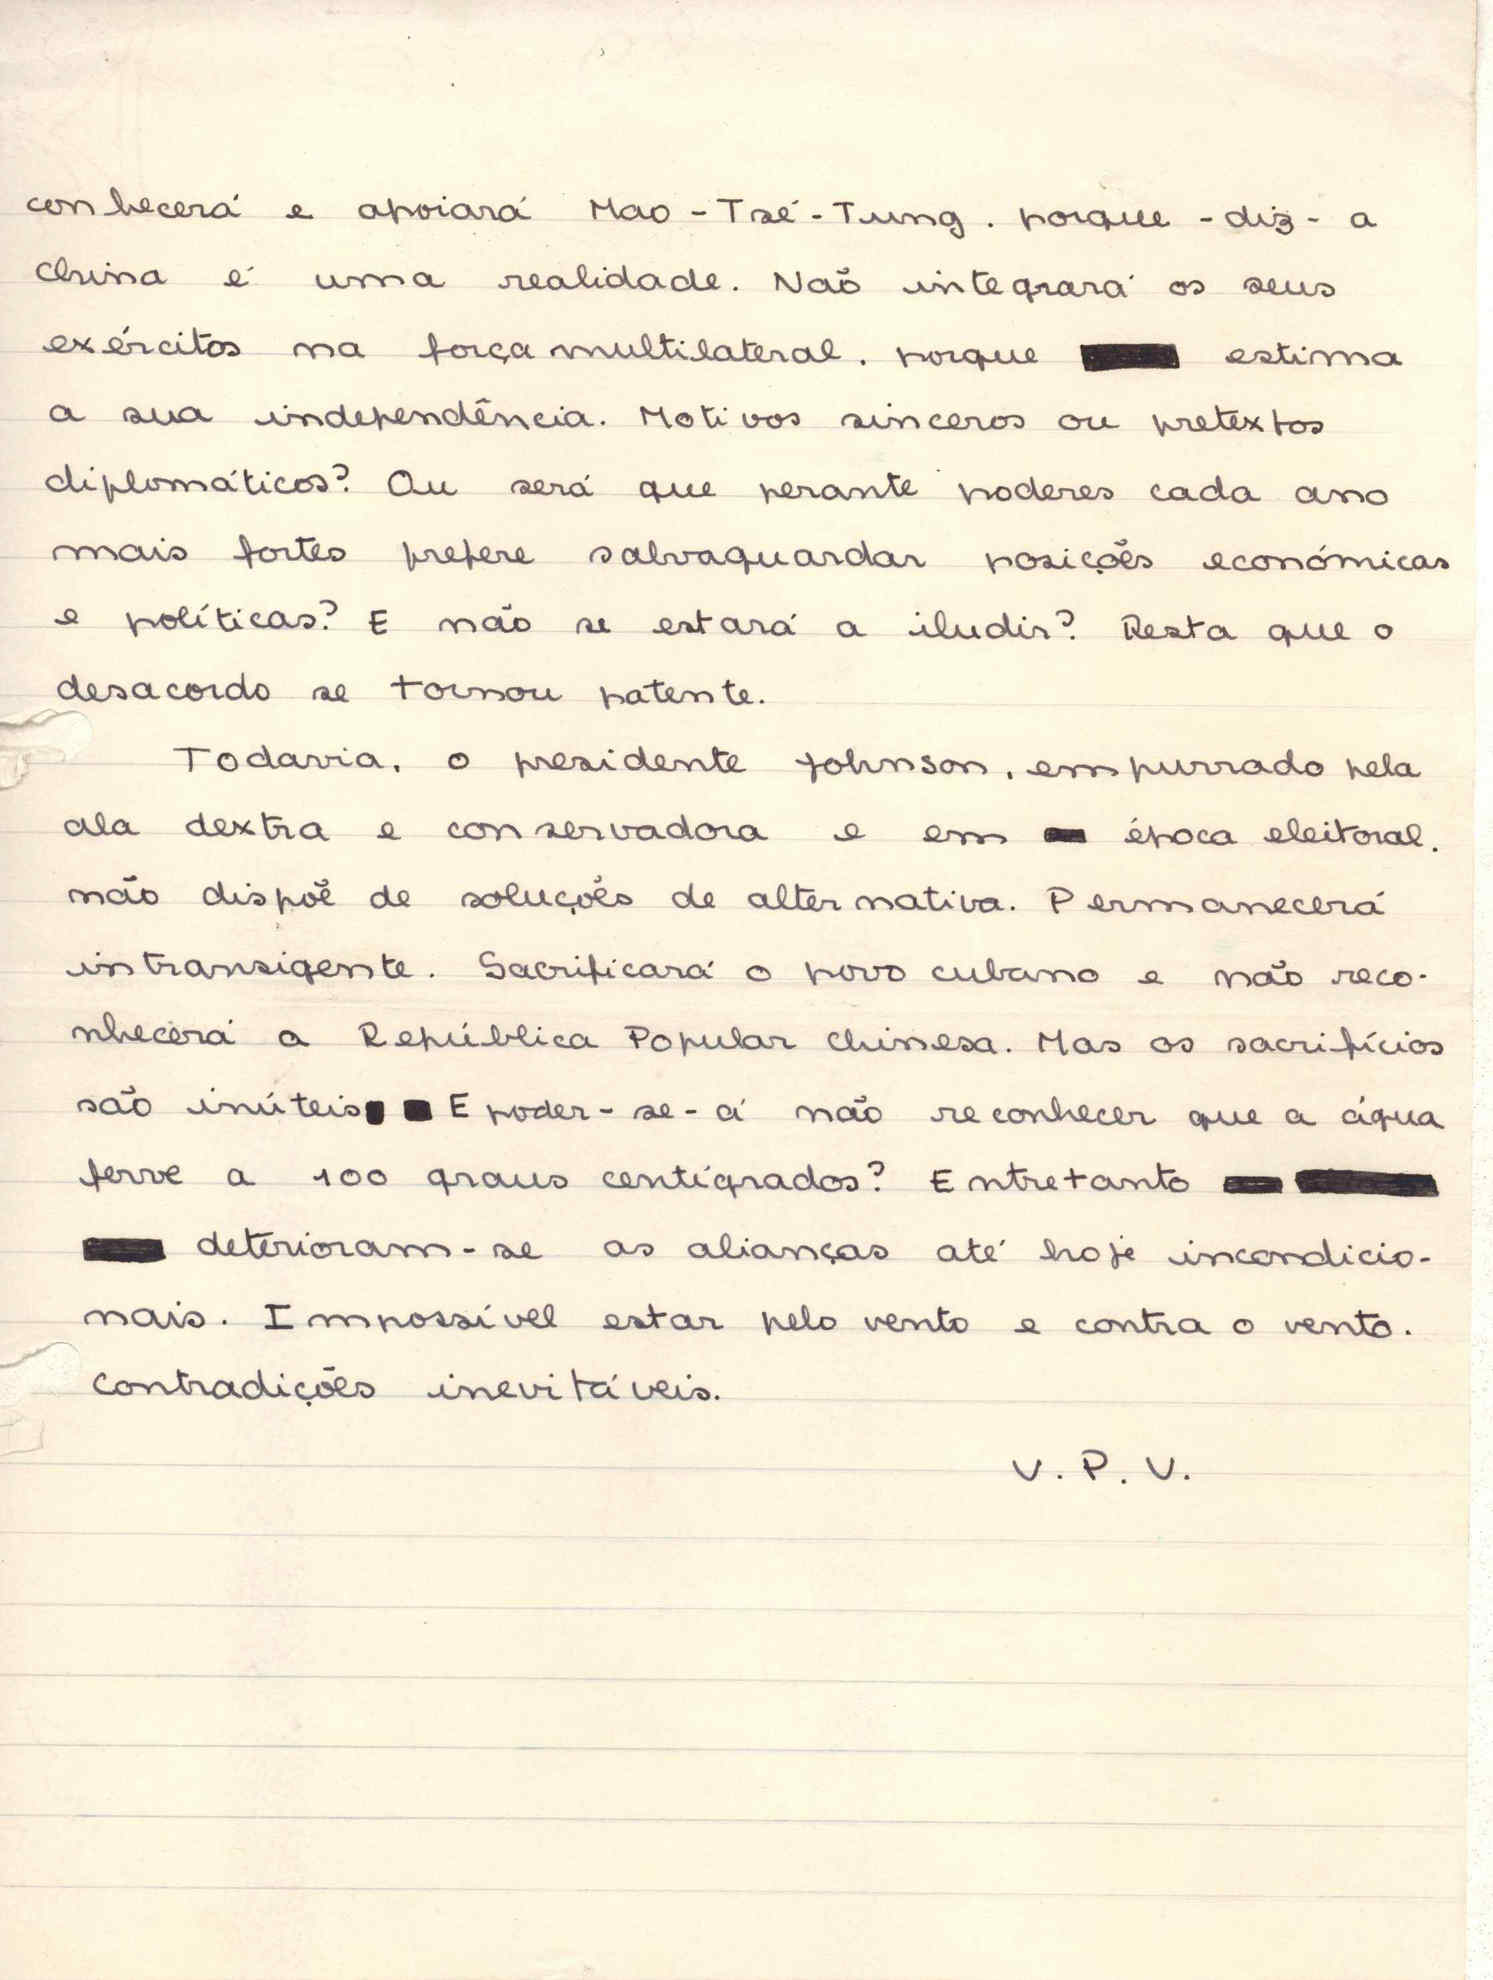 conhecerá e apoiará Mao-Tsé-Tung, porque - diz - a
China é uma realidade. Não integrará os seus
exércitos na força multilateral, porque estima
a sua independência. Motivos sinceros ou pretextos
diplomáticos? Ou será que perante poderes cada ano
mais fortes prefere salvaguardar posições económicas
e políticas? E não se estará a iludir? Resta que o
desacordo se tornou patente.
Todavia, o presidente Johnson, empurrado pela
ala dextra e conservadora e em época eleitoral,
não dispõe de soluções de alternativa. Permanecerá
intransigente. Sacrificará o povo cubano e não reco-
nhecerá a República Popular Chinesa. Mas os sacrifícios
são inúteis E poder-se-á não reconhecer que a água
ferve a 100 graus centígrados? Entretanto
deterioram-se as alianças até hoje incondicio-
nais. Impossível estar pelo vento e contra o vento.
Contradições inevitáveis.
V. P. V.